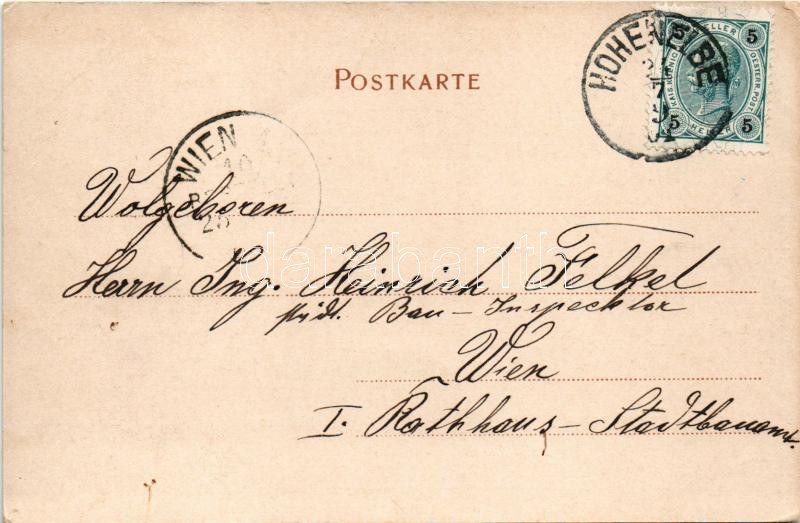 POSTKARTE
HOHENELBE
5 HELLER 5
KAIS. KÖNIGL. OESTERR. POST
5 HELLER 5
WIEN
Wolgeboren
Herrn Ing. Heinrich Felkel
städt. Bau-Inspecktor
Wien
I. Rathhaus-Stadtbauamt.
darabanth